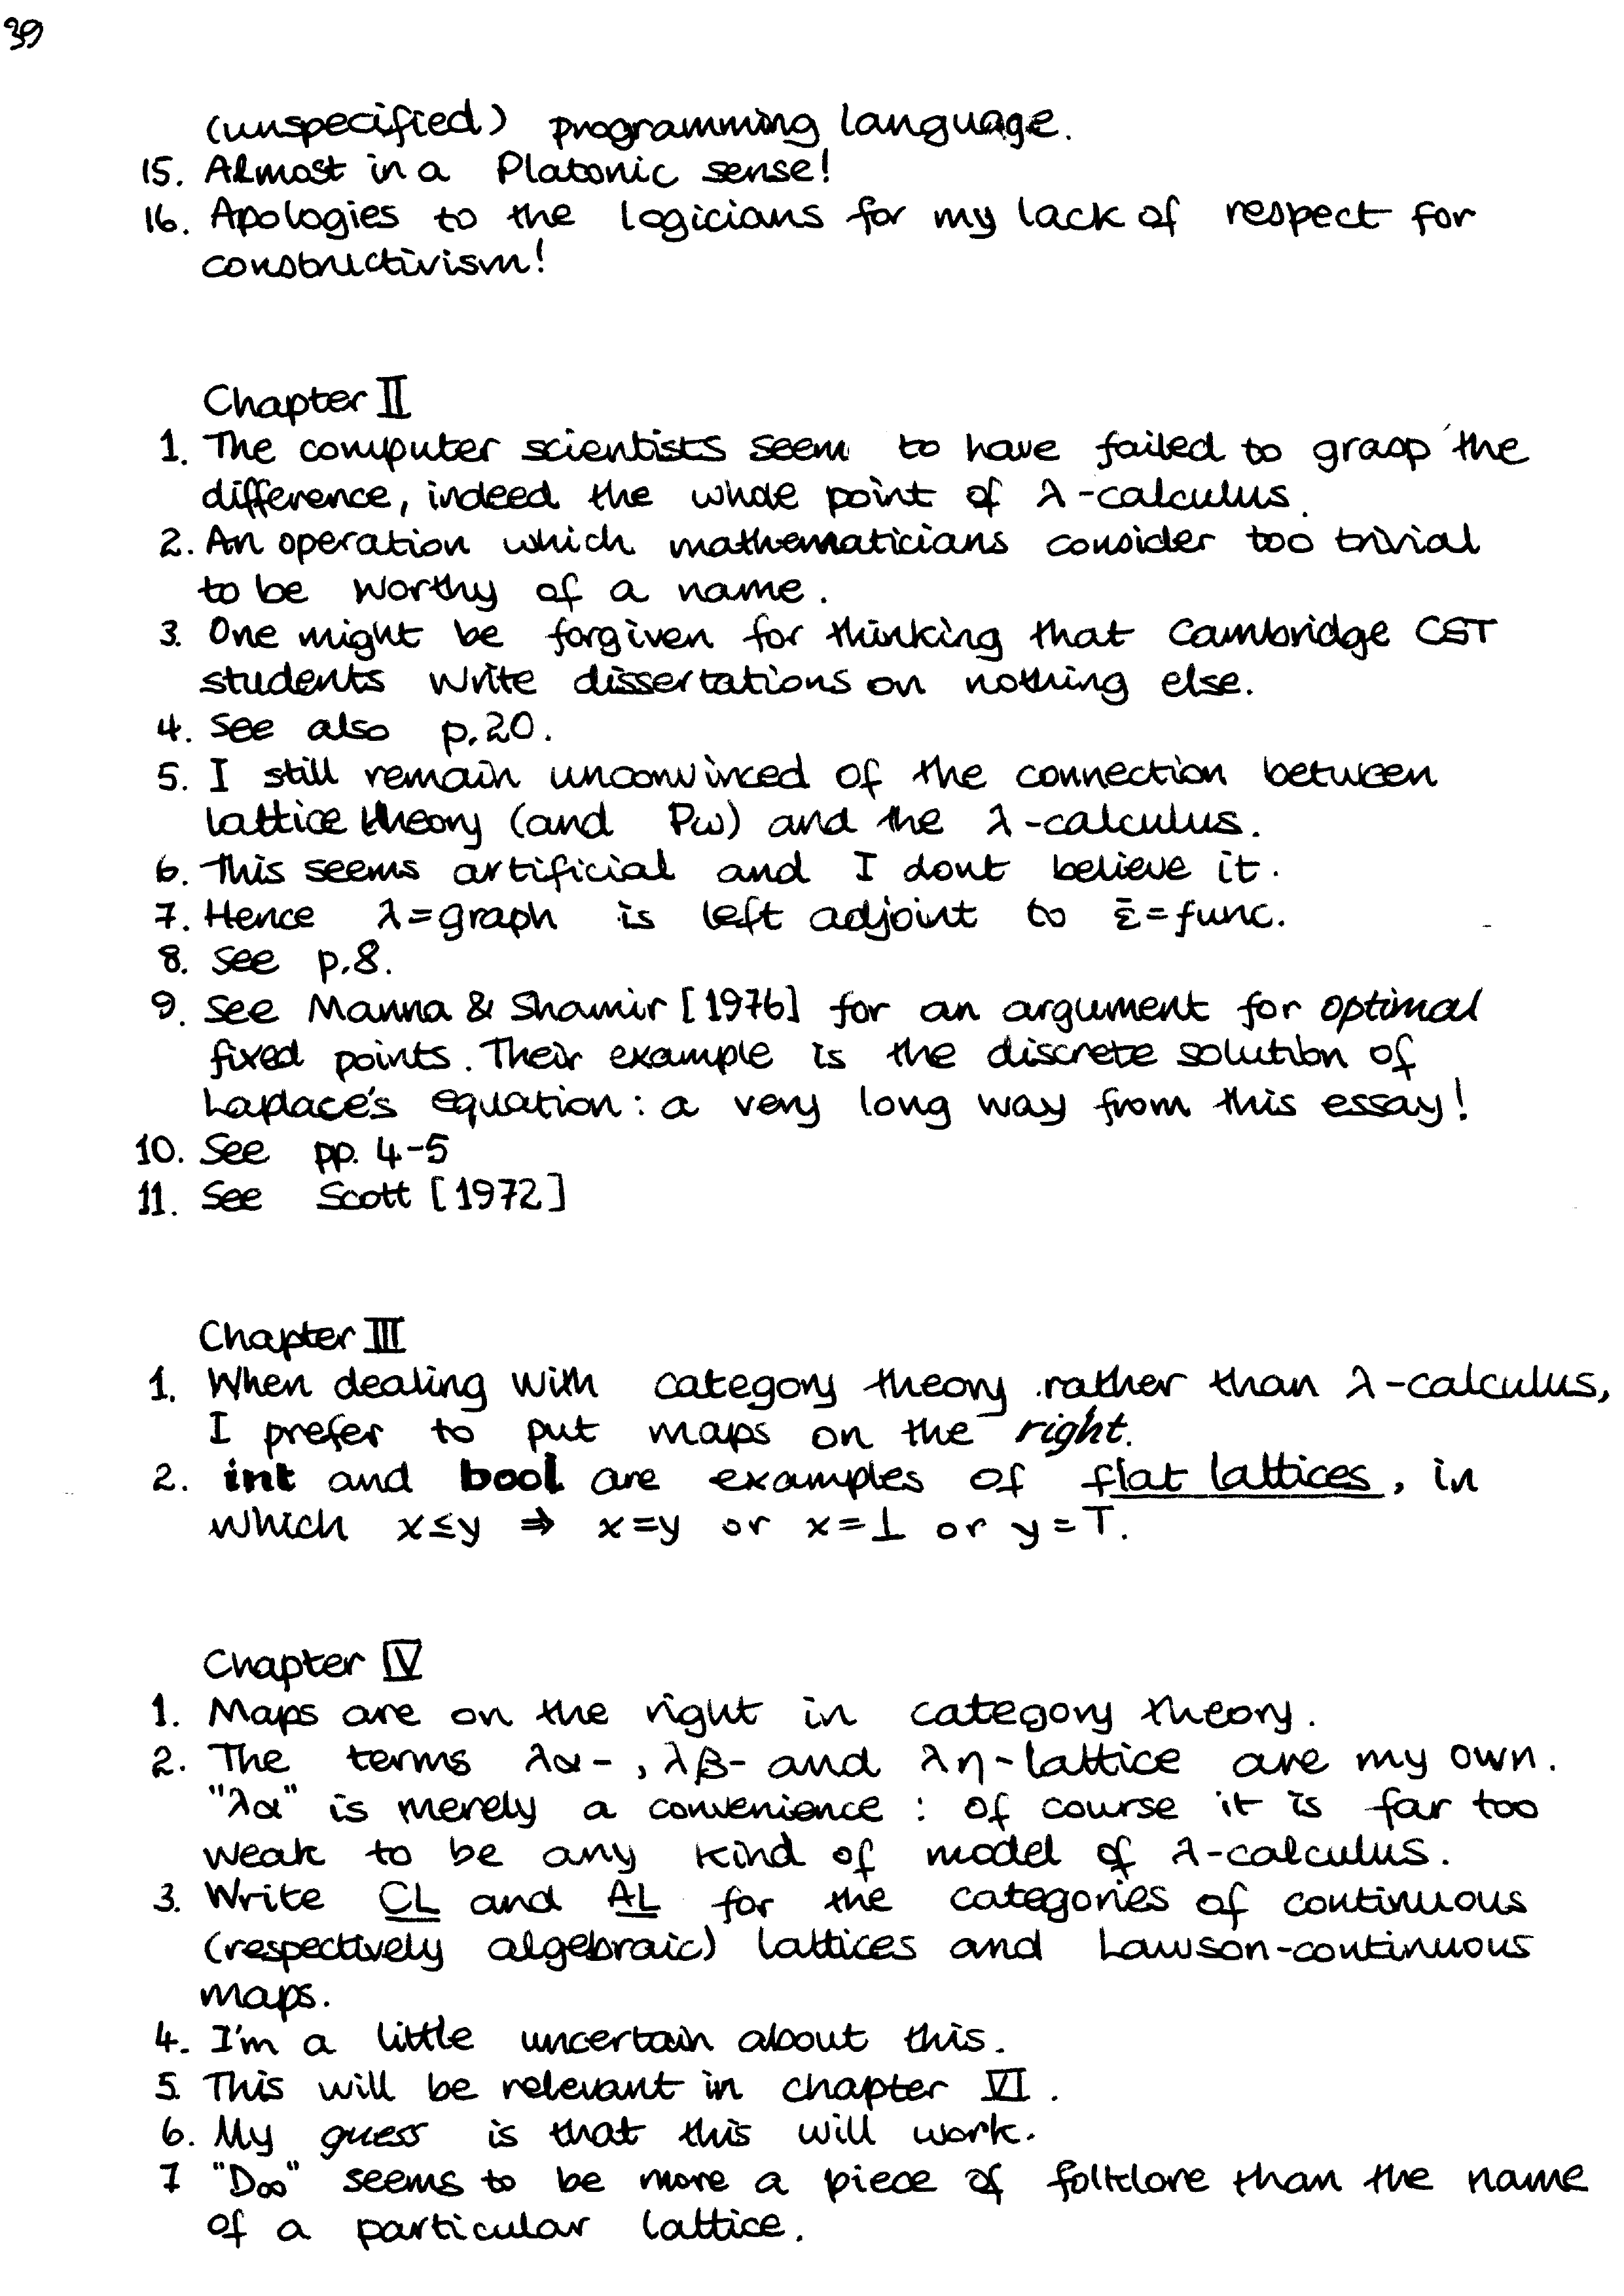 39
(unspecified) programming language.
15. Almost in a Platonic sense!
16. Apologies to the logicians for my lack of respect for
constructivism!
Chapter II
1. The computer scientists seem to have failed to grasp the
difference, indeed the whole point of λ-calculus.
2. An operation which mathematicians consider too trivial
to be worthy of a name.
3. One might be forgiven for thinking that Cambridge CST
students write dissertations on nothing else.
4. See also p.20.
5. I still remain unconvinced of the connection between
lattice theory (and Pω) and the λ-calculus.
6. This seems artificial and I dont believe it.
7. Hence λ=graph is left adjoint to ε̄=func.
8. See p.8.
9. See Manna & Shamir [1976] for an argument for optimal
fixed points. Their example is the discrete solution of
Laplace's equation: a very long way from this essay!
10. See pp. 4-5
11. See Scott [1972]
Chapter III
1. When dealing with category theory rather than λ-calculus,
I prefer to put maps on the right.
2. int and bool are examples of flat lattices, in
which x≤y ⇒ x=y or x=⊥ or y=⊤.
Chapter IV
1. Maps are on the right in category theory.
2. The terms λα-, λβ- and λη-lattice are my own.
"λα" is merely a convenience: of course it is far too
weak to be any kind of model of λ-calculus.
3. Write CL and AL for the categories of continuous
(respectively algebraic) lattices and Lawson-continuous
maps.
4. I'm a little uncertain about this.
5. This will be relevant in chapter VI.
6. My guess is that this will work.
7 "D∞" seems to be more a piece of folklore than the name
of a particular lattice.